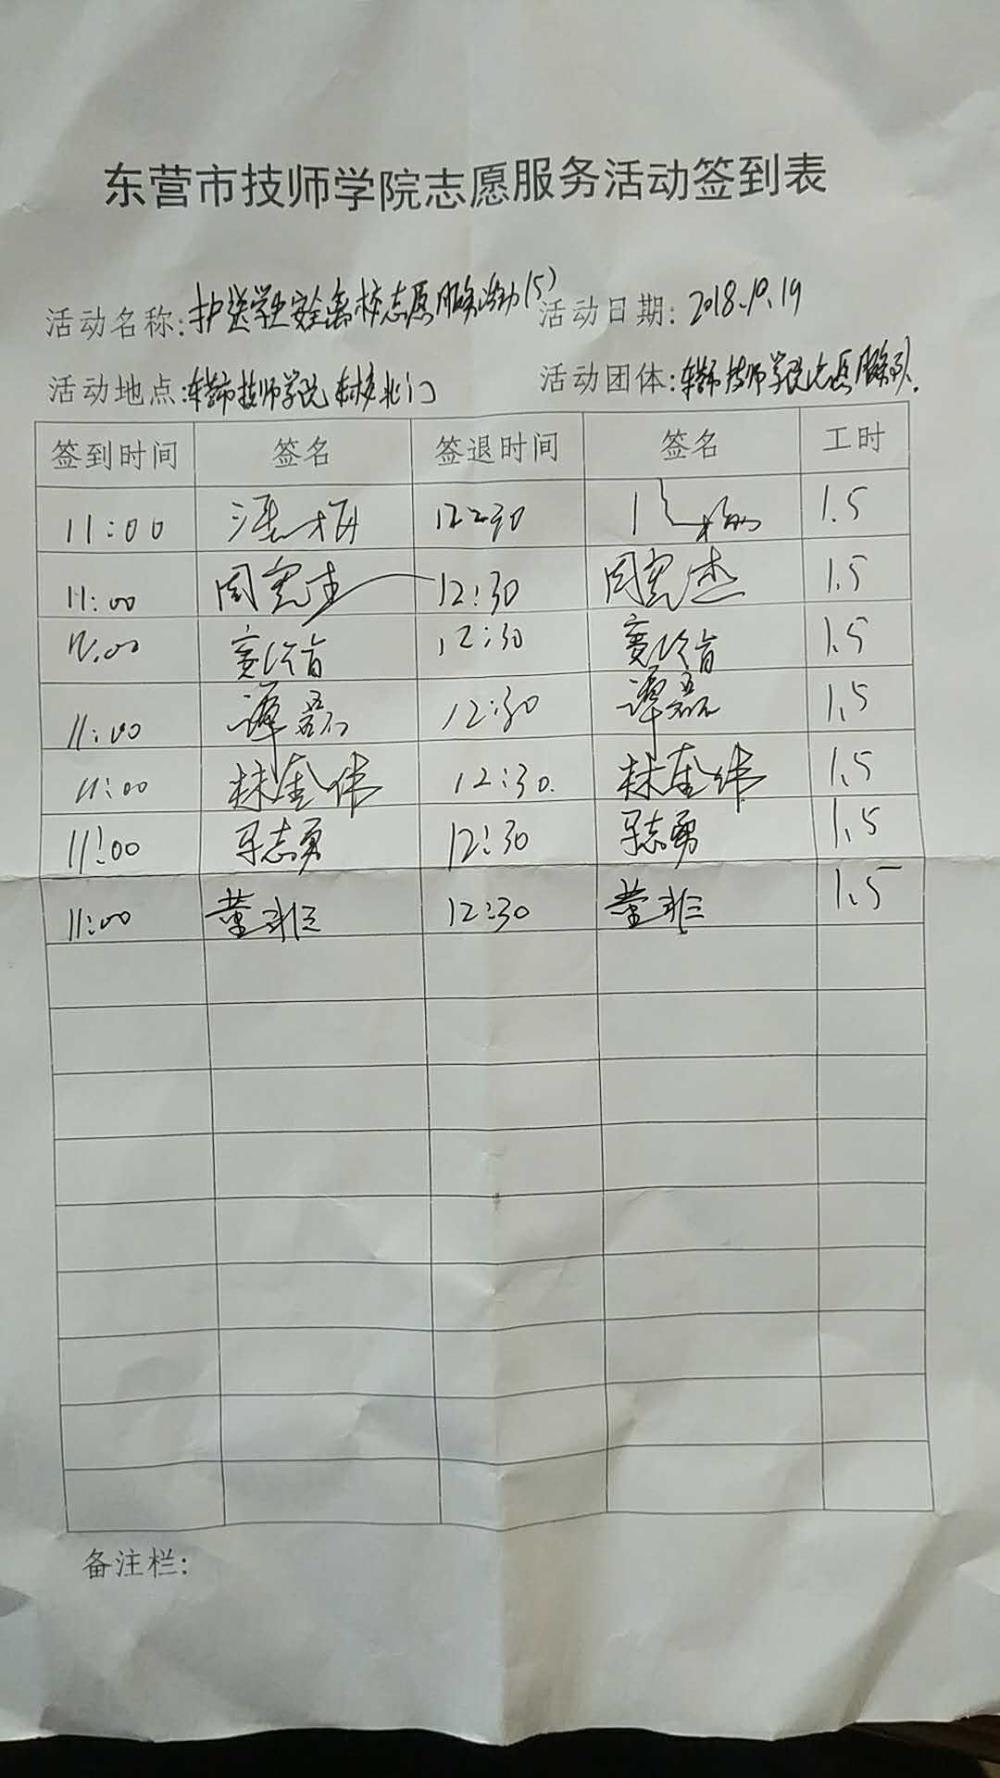 东营市技师学院志愿服务活动签到表
活动名称:护送学生安全离校志愿服务活动(5) 活动日期:2018.10.19
活动地点:东营市技师学院东校北门 活动团体:东营市技师学院志愿服务队.
签到时间 签名 签退时间 签名 工时
11:00 12:30 1.5
11:00 周宪杰 12:30 周宪杰 1.5
12:30 1.5
11:00 谭磊 12:30 谭磊 1.5
11:00 林奎伟 12:30. 林奎伟 1.5
11:00 马志勇 12:30 马志勇 1.5
11:00 董非 12:30 董非 1.5
备注栏: